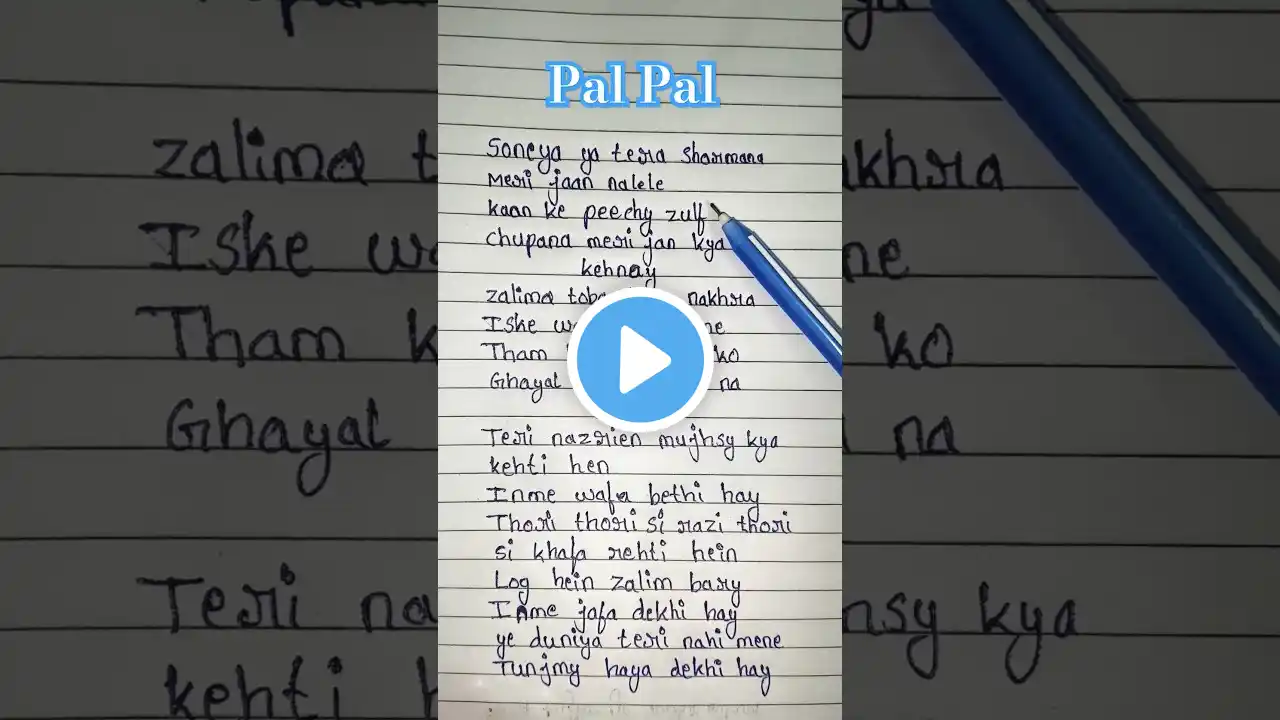 Pal Pal
Soneya ya tera sharmana
Meri jaan nalele
kaan ke peechy zulf
chupana meri jan kya
kehnay
zalima toba nakhra
Iske
Tham ko
Ghayal na
Teri nazrien mujhsy kya
kehti hen
Inme wafa bethi hay
Thori thori si razi thori
si khafa rehti hein
Log hein zalim bary
Inme jafa dekhi hay
ye duniya teri nahi mene
Tunjmy haya dekhi hay